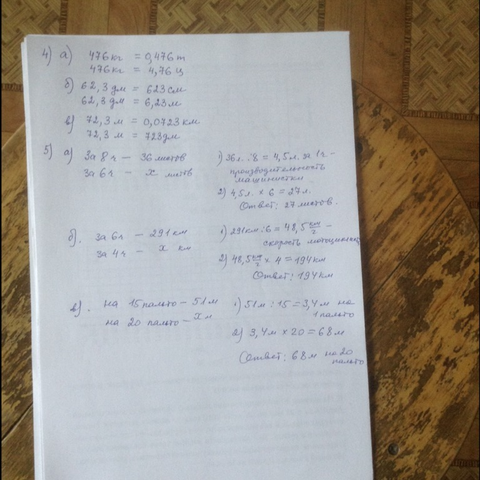 4) а) 476 кг = 0,476 т
476 кг = 4,76 ц
б) 62,3 дм = 623 см
62,3 дм = 6,23 м
в) 72,3 м = 0,0723 км.
72,3 м = 723 дм
5) а) За 8 ч – 36 листов
За 6 ч – х листв
1) 36 л. : 8 = 4,5 л. за 1 ч –
производительность
машинистки.
2) 4,5 л. × 6 = 27 л.
Ответ: 27 листов.
б). за 6 ч – 291 км
за 4 ч – х км
1) 291 км : 6 = 48,5 км/ч –
скорость
2) 48,5 км/ч × 4 = 194 км
Ответ: 194 км
в). на 15 пальто – 51 м
на 20 пальто – х м
1) 51 м : 15 = 3,4 м на
1 пальто
2) 3,4 м × 20 = 68 м
Ответ: 68 м на 20
пальто